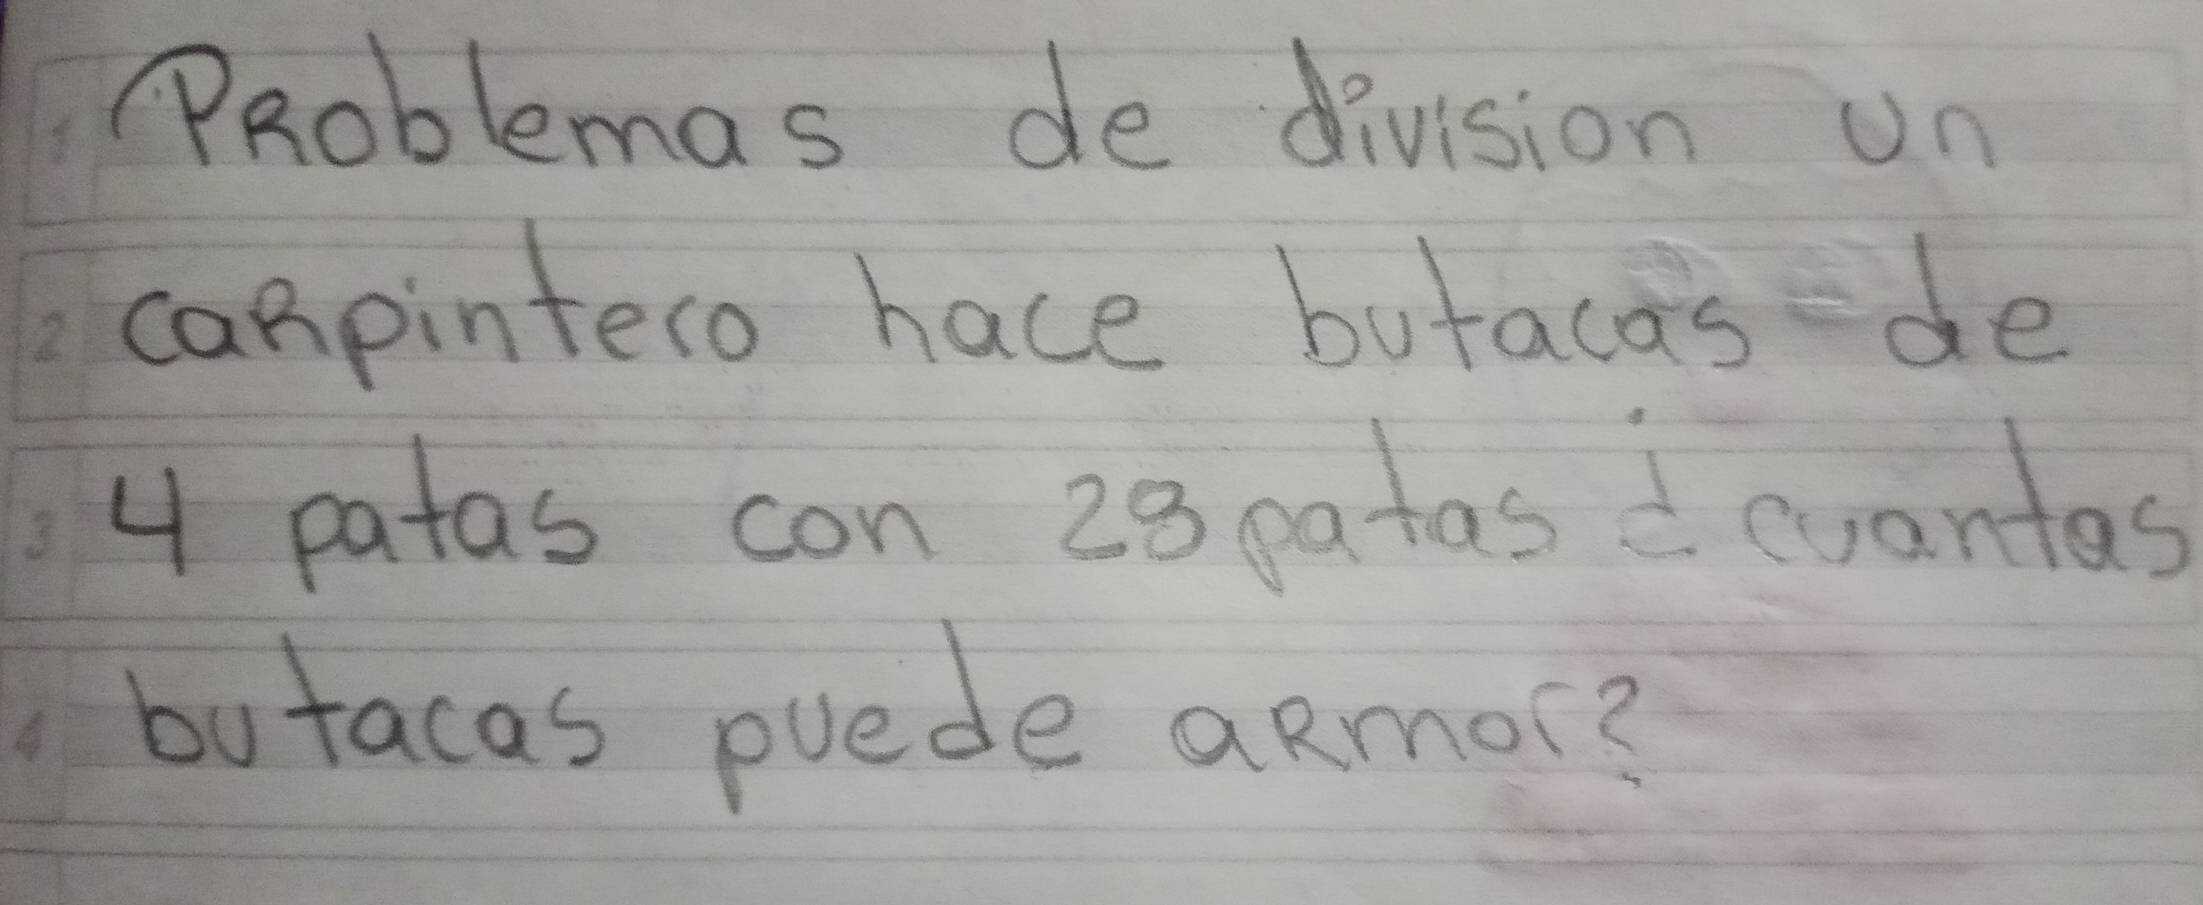 PRoblemas de division un
caRpintero hace butacas de
4 patas con 28 patas ¿cuantas
butacas puede aRmar?